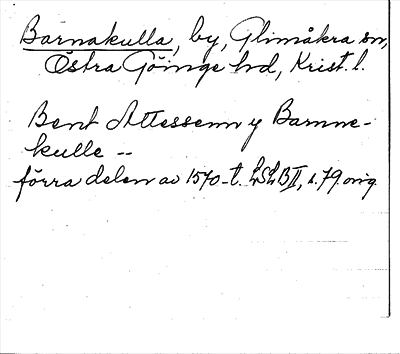 Barnakulla, by, Glimåkra sn,
Östra Göinge hd, Krist. l.
Bent Attessenn y Barnne-
kulle --
förra delen av 1570-t. LSLB II, s. 79 orig.